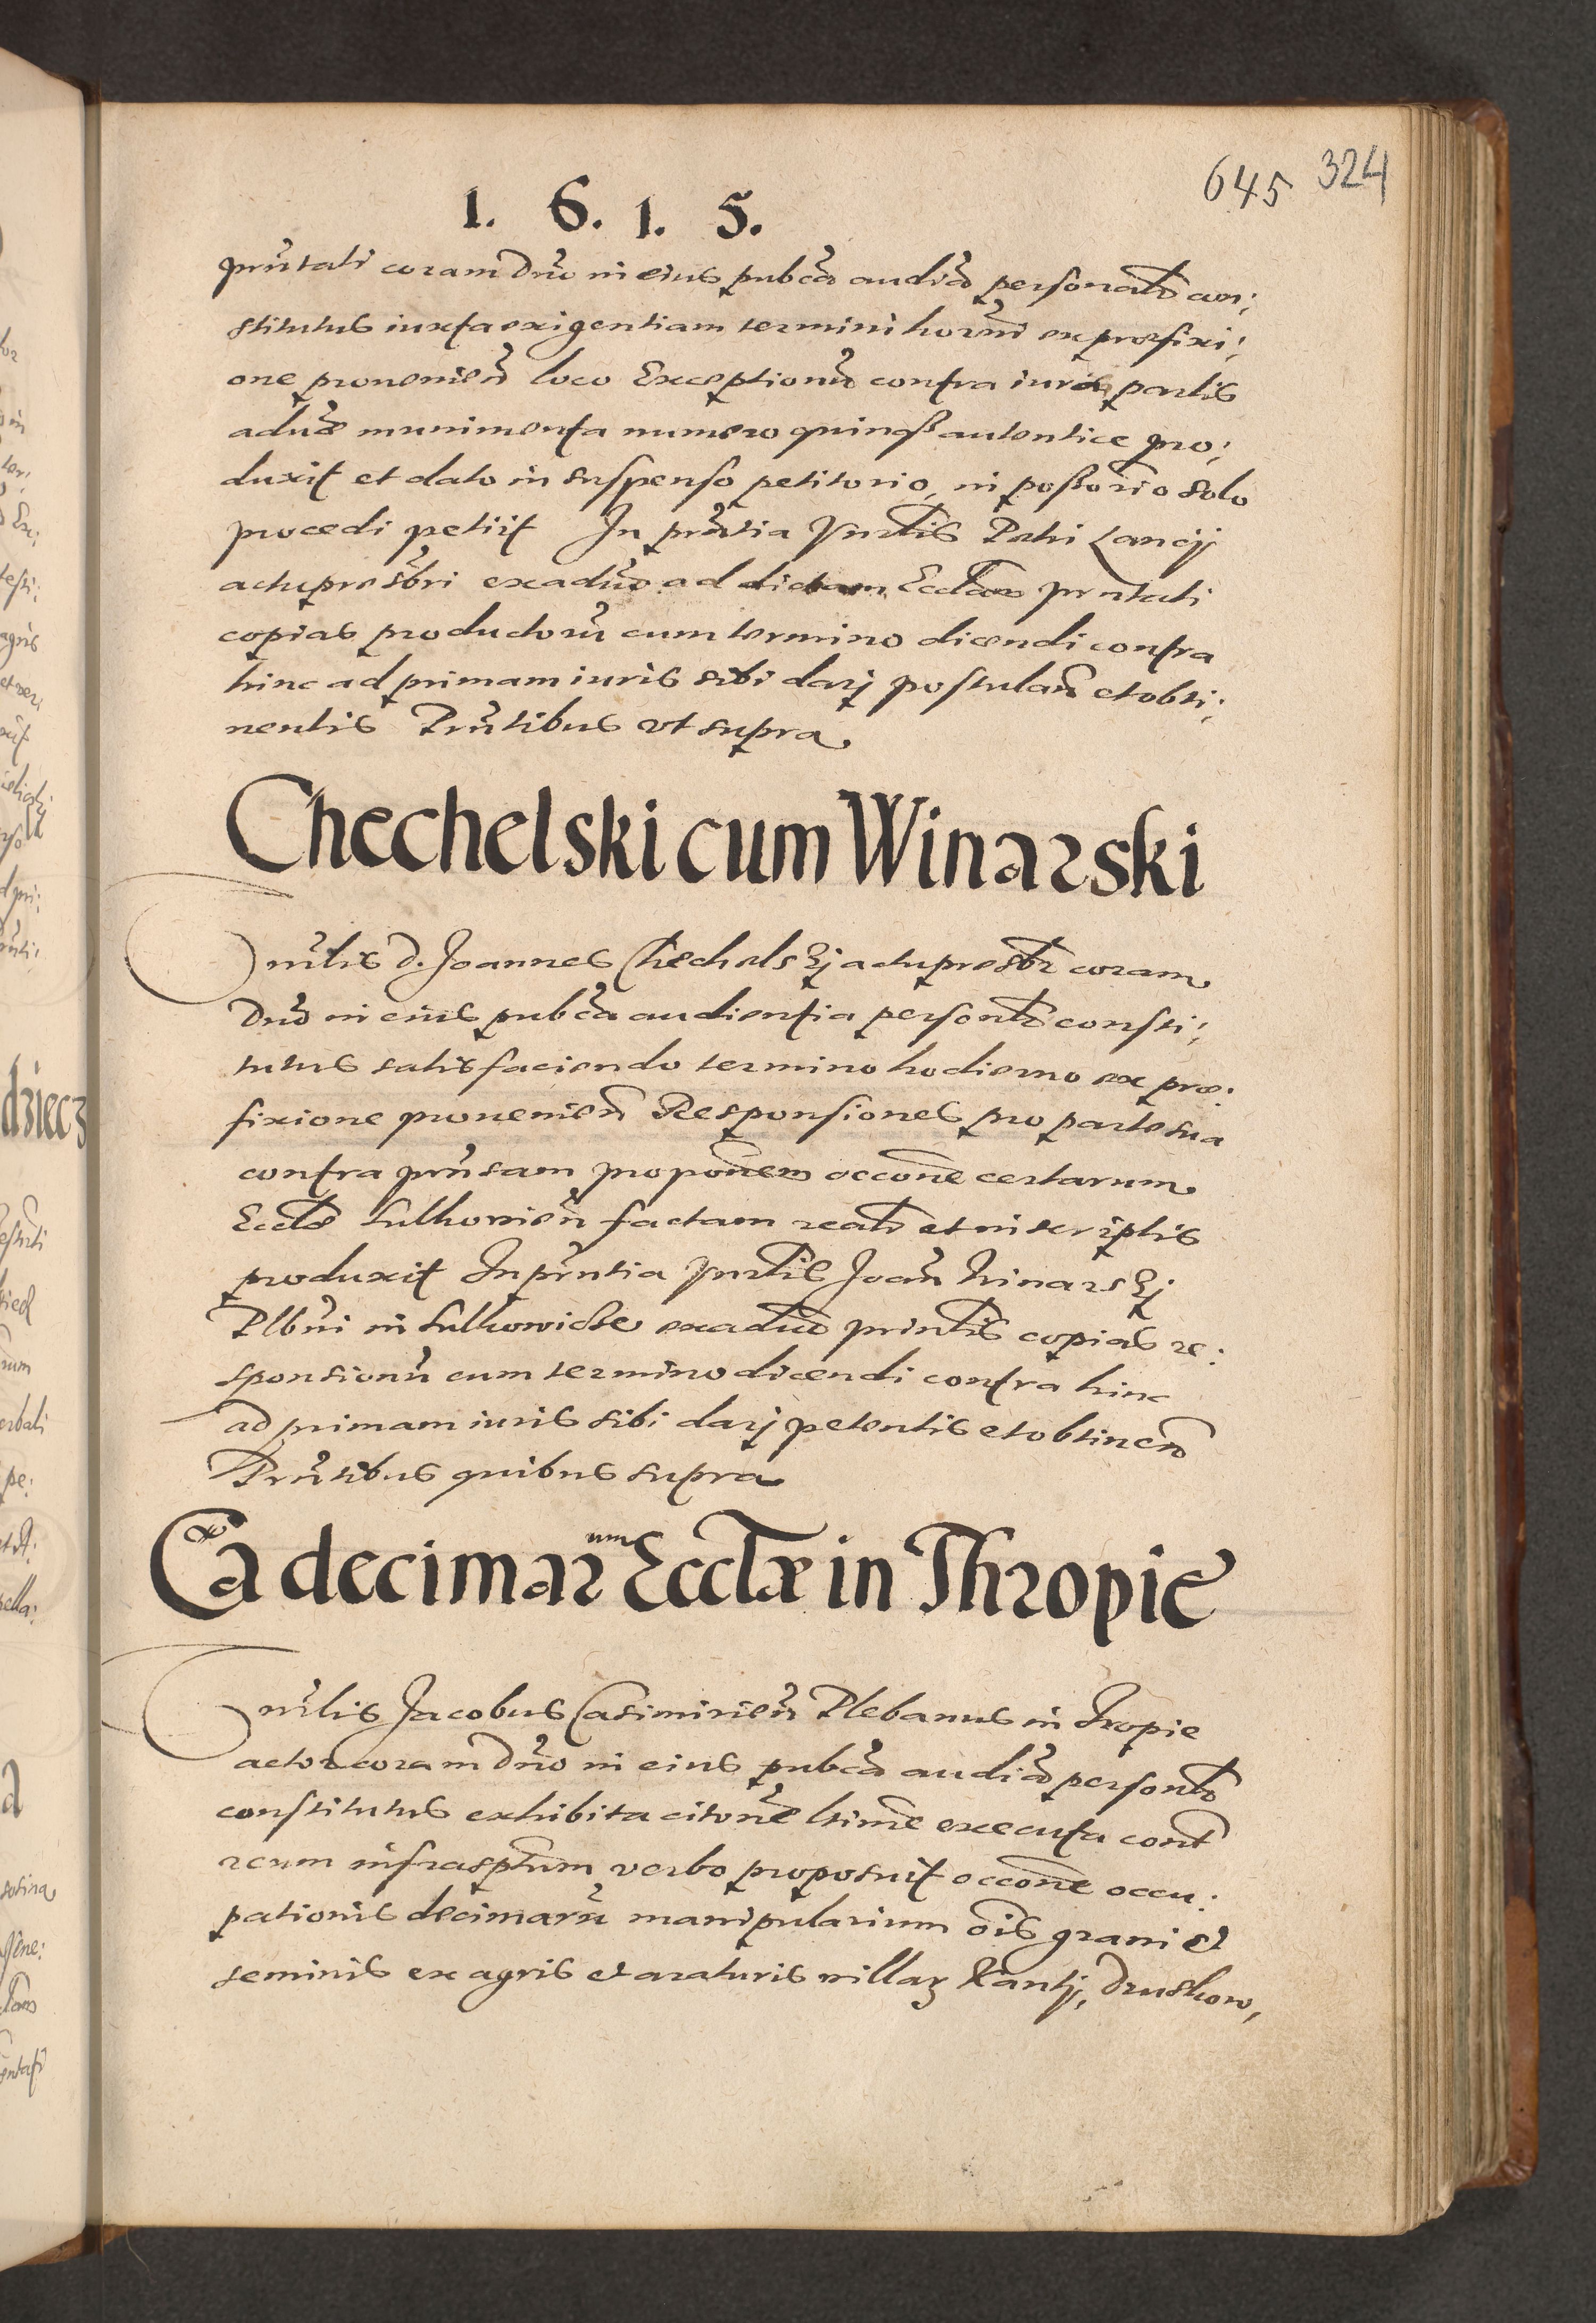 645 324
1. 6. 1. 5.
prñtati coram Dño in eius pubca audia personalr con:
stitutus iuxta exigentiam termini horñi ex præfixi:
one proueniẽn loco Exceptionũ contra iura partis
aduæ munimenta numero quinqȝ autentice pro:
duxit et dato in suspenso petitorio, in possorio solo
procedi petiit In prñtia Vnrlis Petri Lancij
actu presbri ex aduo ad dictam Ecclam prntati
copias productorũ cum termino dicendi contra
hinc ad primam iuris sibi darj postulañ et obti:
nentis Prñtibus vt supra
Chechelski cum Winarski
Vnrlis d. Joannes Chechelskj actu presbr coram
Dño in eius pubca audientia personlr consti:
tutus satisfaciendo termino hodierno ex præ:
fixione proueniẽn Responsiones pro parte sua
contra prñsam proponẽm occone certarum
Ecclæ Sulkouiẽn factam realr et in scriptis
produxit In prñtia Vnrlis Joañ Winarskj
Plbñi in Sulkowicze ex aduo printis copias re:
sponsionũ cum termino dicendi contra hinc
ad primam iuris sibi darj petentis et obtineñ
Prñtibus quibus supra
Ca decimarum Ecclæ in Thropie
Vnrlis Jacobus Casimiriẽn Plebanus in Tropie
actor coram Dño in eius pubca audia personlr
constitutus exhibita citone ltime executa cont
reum infrasptum verbo proposuit occone occu:
pationis decimarũ manipularium ois grani et
seminis ex agris et araturis villaꝝ Kantj, Druskow,